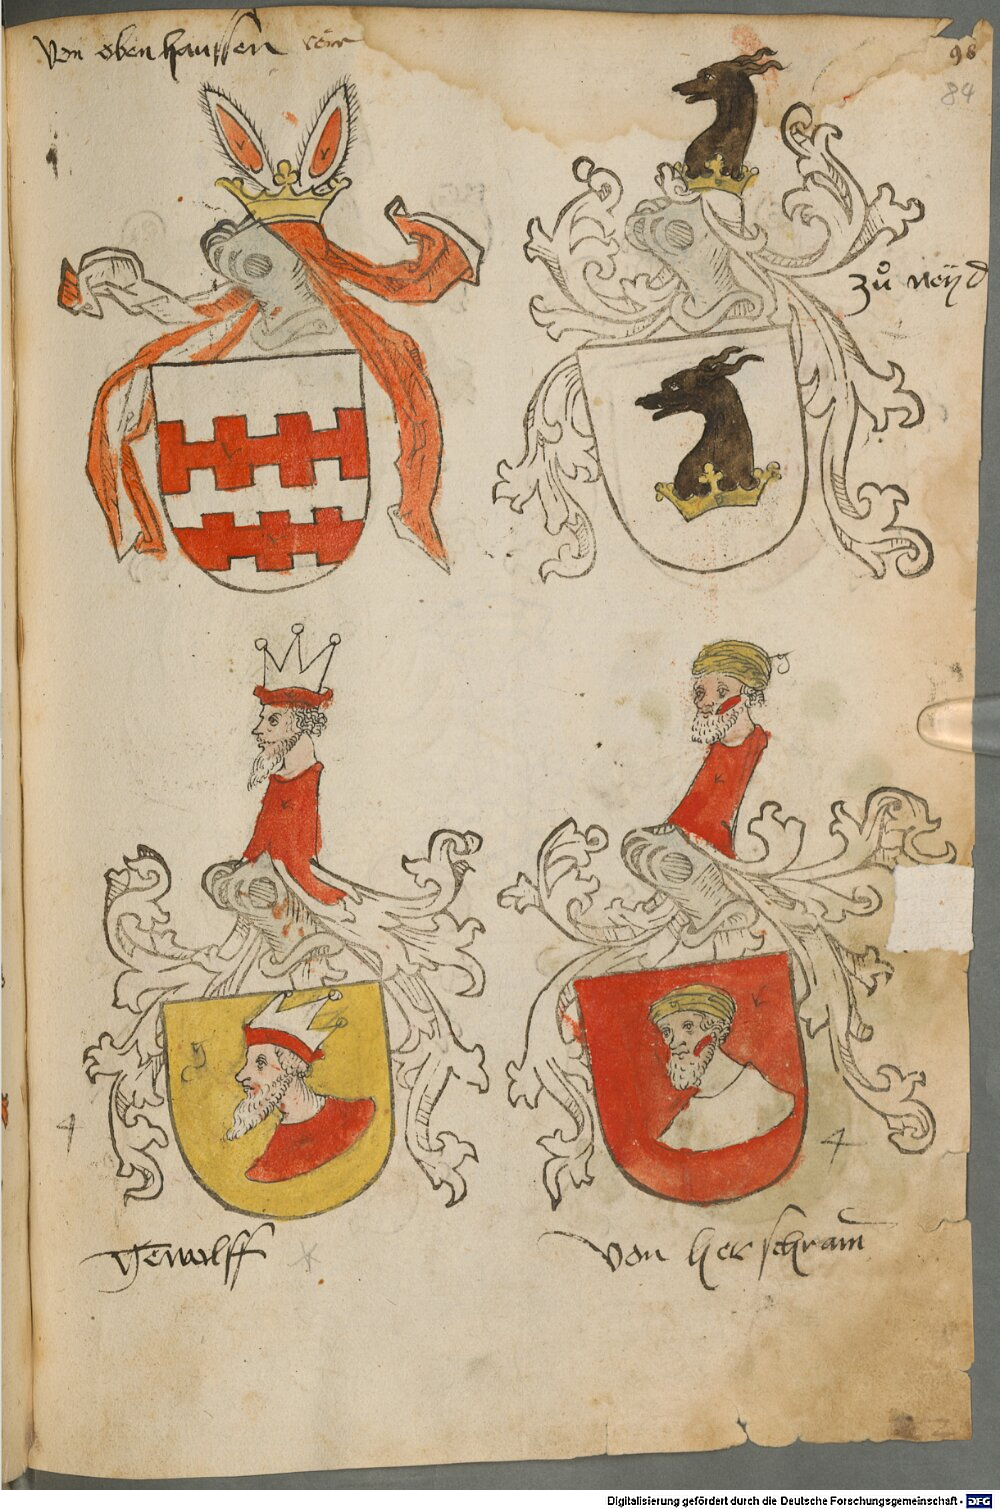 Von obenhaussen
98
84
zů neyd
4
4
gewolff
von herschram
Digitalisierung gefördert durch die Deutsche Forschungsgemeinschaft - DFG